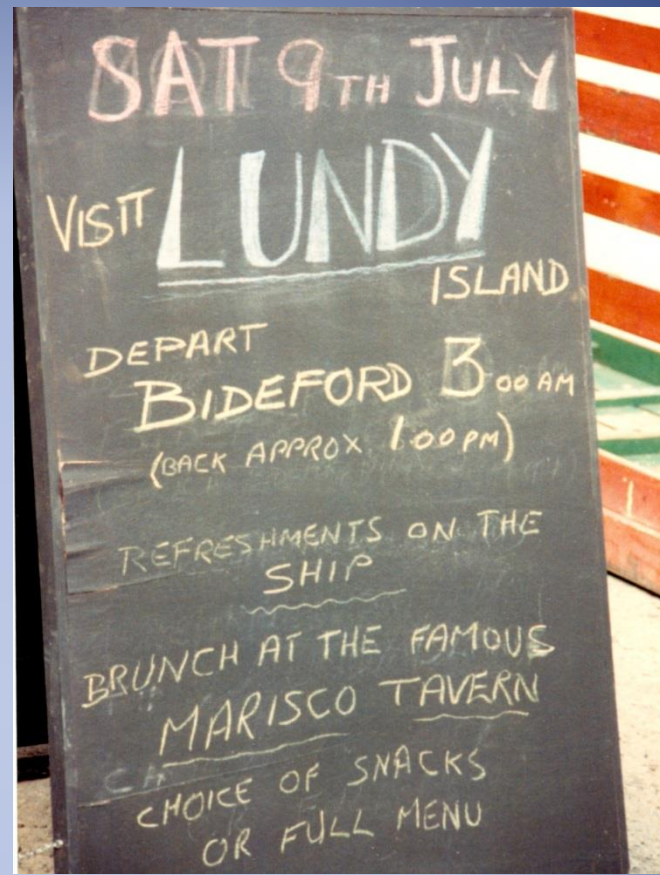 SAT 9TH JULY
VISIT LUNDY
ISLAND
DEPART
BIDEFORD 3 00 AM
(BACK APPROX 1.00 PM)
REFRESHMENTS ON THE
SHIP
BRUNCH AT THE FAMOUS
MARISCO TAVERN
CHOICE OF SNACKS
OR FULL MENU